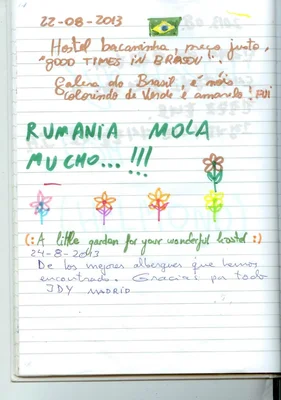 22-08-2013
Hostel bacaninha, preço justo,
"GOOD TIMES IN BRASOV"!..
Galera do Brasil, é nóis
Colorindo de Verde e amarelo! FUI
RUMANIA MOLA
MUCHO...!!!
(: A little garden for your wonderful hostel :)
24-8-2013
De los mejores albergues que hemos
encontrado. Gracias por todo
JDY MADRID